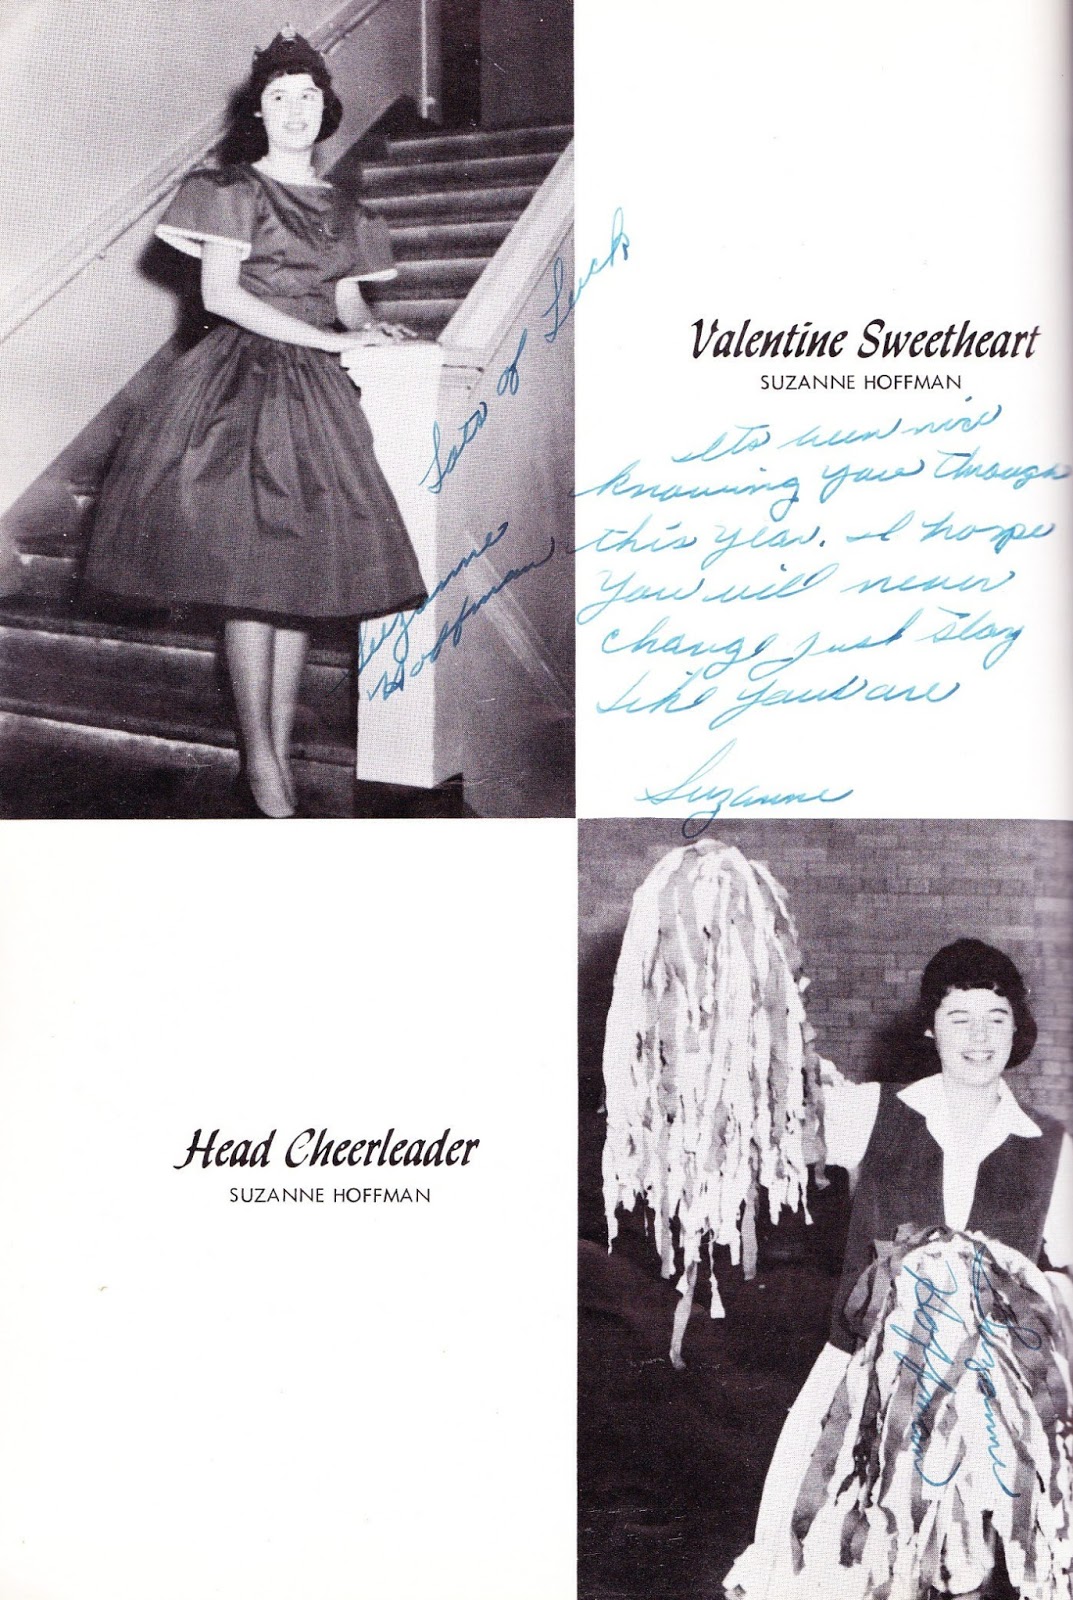 Lots of Luck
Suzanne
Hoffman
Valentine Sweetheart
SUZANNE HOFFMAN
Its been nice
knowing you through
this year. I hope
you will never
change just stay
like you are
Suzanne
Head Cheerleader
SUZANNE HOFFMAN
Suzanne
Hoffman